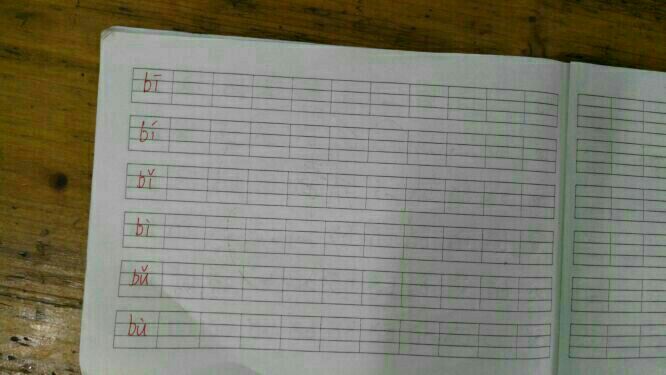 bī
bí
bǐ
bì
bǔ
bù